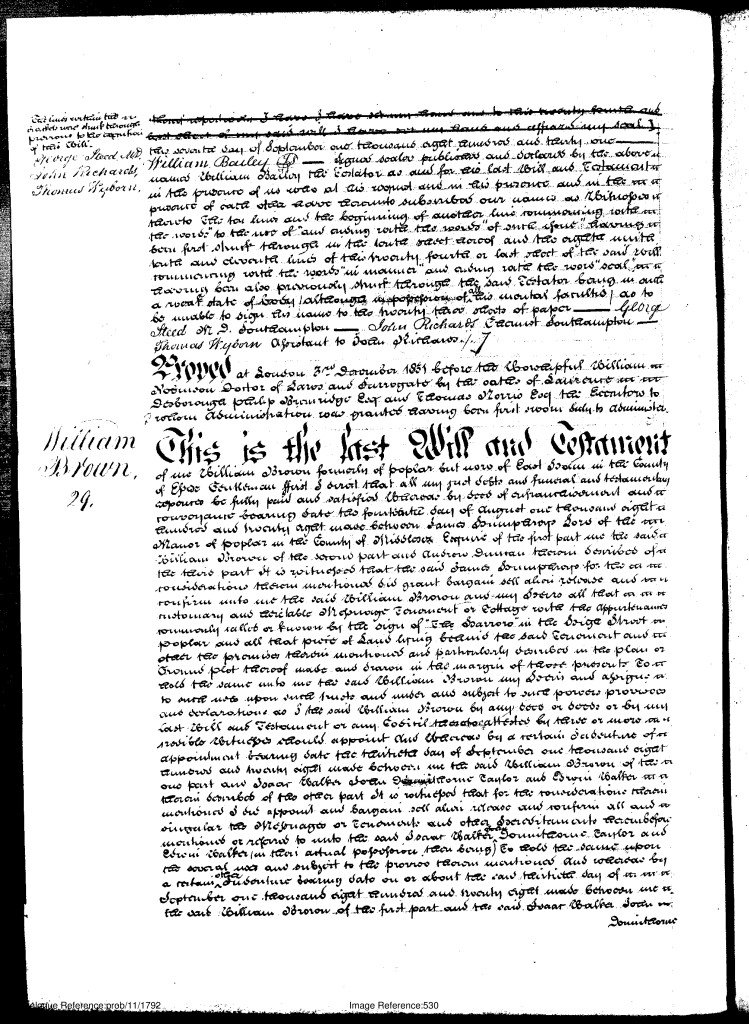 Ten lines wherein the words were struck through previous to the execution of this Will.
George Steed MD,
John Richards,
Thomas Wyborn,
the seventh day of September one thousand eight hundred and thirty one
William Bailey LS signed sealed published and declared by the above
named William Bailey the Testator as and for his last Will and Testament
in the presence of us who at his request and in his presence and in the
presence of each other have hereunto subscribed our names as Witnesses
thereto The ten lines and the beginning of another line commencing with
the words "to the use of" and ending with the words "of such issue" having
been first struck through in the tenth sheet hereof and the eighth ninth
tenth and eleventh lines of this twenty fourth or last sheet of the said Will
commencing with the words "in manner" and ending with the word "seal"
having been also previously struck through the said Testator being in
a weak state of body (although in possession of all his mental faculties) as to
be unable to sign his name to the twenty three sheets of paper George
Steed M.D. Southampton John Richards Chemist Southampton
Thomas Wyborn Assistant to John Richards
Proved at London 3rd December 1831 before the Worshipful William
Robinson Doctor of Laws and Surrogate by the oaths of Laurence
Desborough Philip Brownridge Esq and Thomas Norris Esq the Executors to
whom Administration was granted having been first sworn duly to Administer
William
Brown,
29.
This is the last Will and Testament
of me William Brown formerly of Poplar but now of East Ham in the County
of Essex Gentleman first I direct that all my just debts and funeral and testamentary
expences be fully paid and satisfied Whereas by deed of enfranchisement and
conveyance bearing date the fourteenth day of August one thousand eight
hundred and twenty eight made between James Humphrys Lord of the
Manor of Poplar in the County of Middlesex Esquire of the first part me the said
William Brown of the second part and Andrew Duncan therein described of
the third part It is witnessed that the said James Humphrys for the
considerations therein mentioned did grant bargain sell alien release and
confirm unto me the said William Brown and my Heirs all that
customary and heritable Messuage Tenement or Cottage with the Appurtenances
commonly called or known by the sign of "The Barrow" in the High Street
Poplar and all that piece of Land lying behind the said Tenement and
other the premises therein mentioned and particularly described in the plan or
Ground plot thereof made and drawn in the margin of those presents To
hold the same unto me the said William Brown my Heirs and Assigns
to such uses upon such trusts and under and subject to such powers provisoes
and declarations as I the said William Brown by any deed or deeds or by my
last Will and Testament or any Codicil thereto attested by three or more
credible Witnesses should appoint And Whereas by a certain Indenture of
appointment bearing date the thirtieth day of September one thousand eight
hundred and twenty eight made between me the said William Brown of the
one part and Isaac Walker John Donnithorne Taylor and Edwin Walker
therein described of the other part It is witnessed that for the considerations therein
mentioned I did appoint and bargain sell alien release and confirm all and
singular the Messuages or Tenements and other Hereditaments therein before
mentioned or referred to unto the said Isaac Walker John Donnithorne Taylor and
Edwin Walker (in their actual possession then being) To hold the same upon
the several uses and subject to the proviso therein mentioned And whereas by
a certain other Indenture bearing date on or about the said thirtieth day of
September one thousand eight hundred and twenty eight made between me
the said William Brown of the first part and the said Isaac Walker John
Donnithorne
Catalogue Reference:prob/11/1792
Image Reference:530